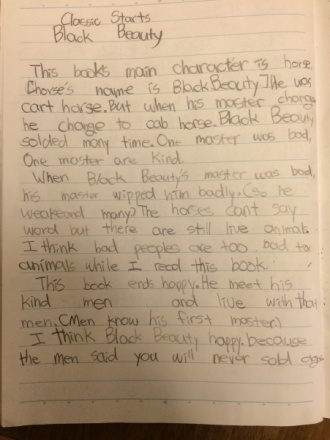 Classic Starts
Black Beauty
This books main character is horse
[horse's nayme is BlackBeauty] He was
cart horse. But when his master change
he change to cab horse. Black Beauty
solded many time. One master was bad,
One master are kind.
When Black Beauty's master was bad,
his master wipped him badly. (so he
weakeand many) The horses can't say
word but there are still live animal.
I think bad peoples are too bad to
animals while I read this book.
This book ends happy. He meet his
kind men and live with that
men. (Men know his first master)
I think Black Beauty happy. because
the men said you will never sold